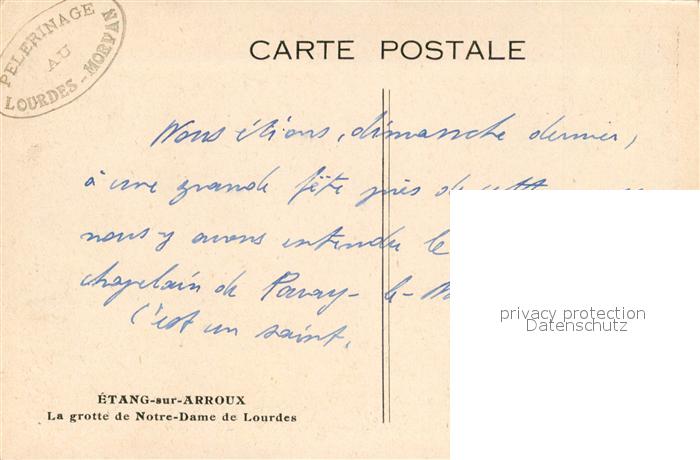 PELERINAGE
AU
LOURDES - MORVAN
CARTE POSTALE
Nous étions, dimanche dernier,
à une grande fête près de cette
nous y avons entendu le
chapelain de Paray-le-M
C'est un saint.
privacy protection
Datenschutz
ÉTANG-sur-ARROUX
La grotte de Notre-Dame de Lourdes